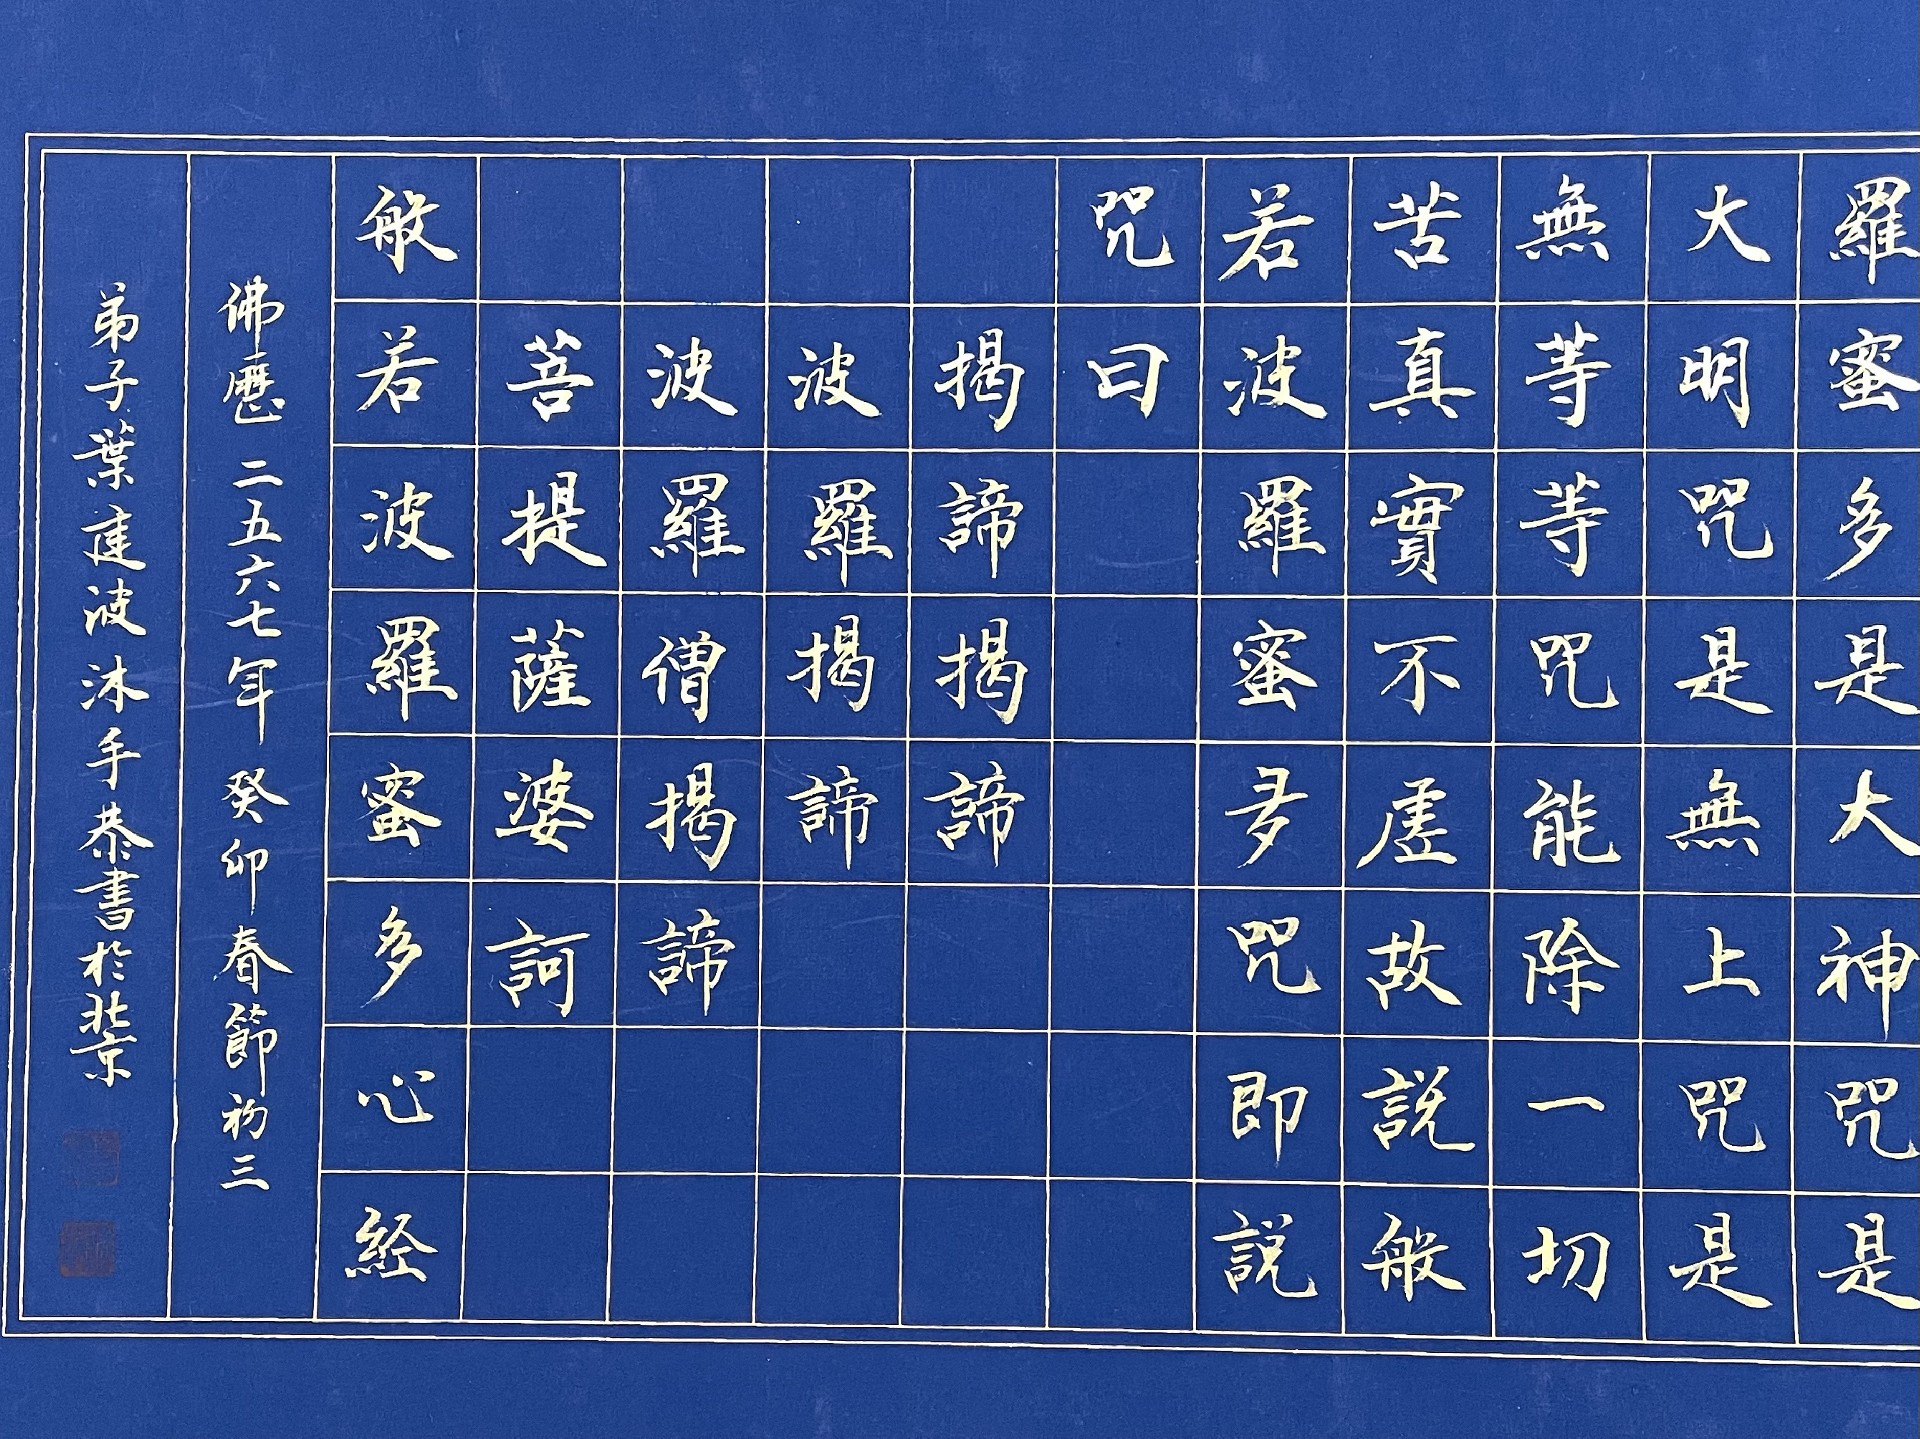 羅蜜多是大神咒是
大明咒是無上咒是
無等等咒能除一切
苦真實不虛故説般
若波羅蜜多咒即説
咒曰
揭諦揭諦
波羅揭諦
波羅僧揭諦
菩提薩婆訶
般若波羅蜜多心経
佛曆二五六七年癸卯春節初三
弟子葉建波沐手恭書於北京